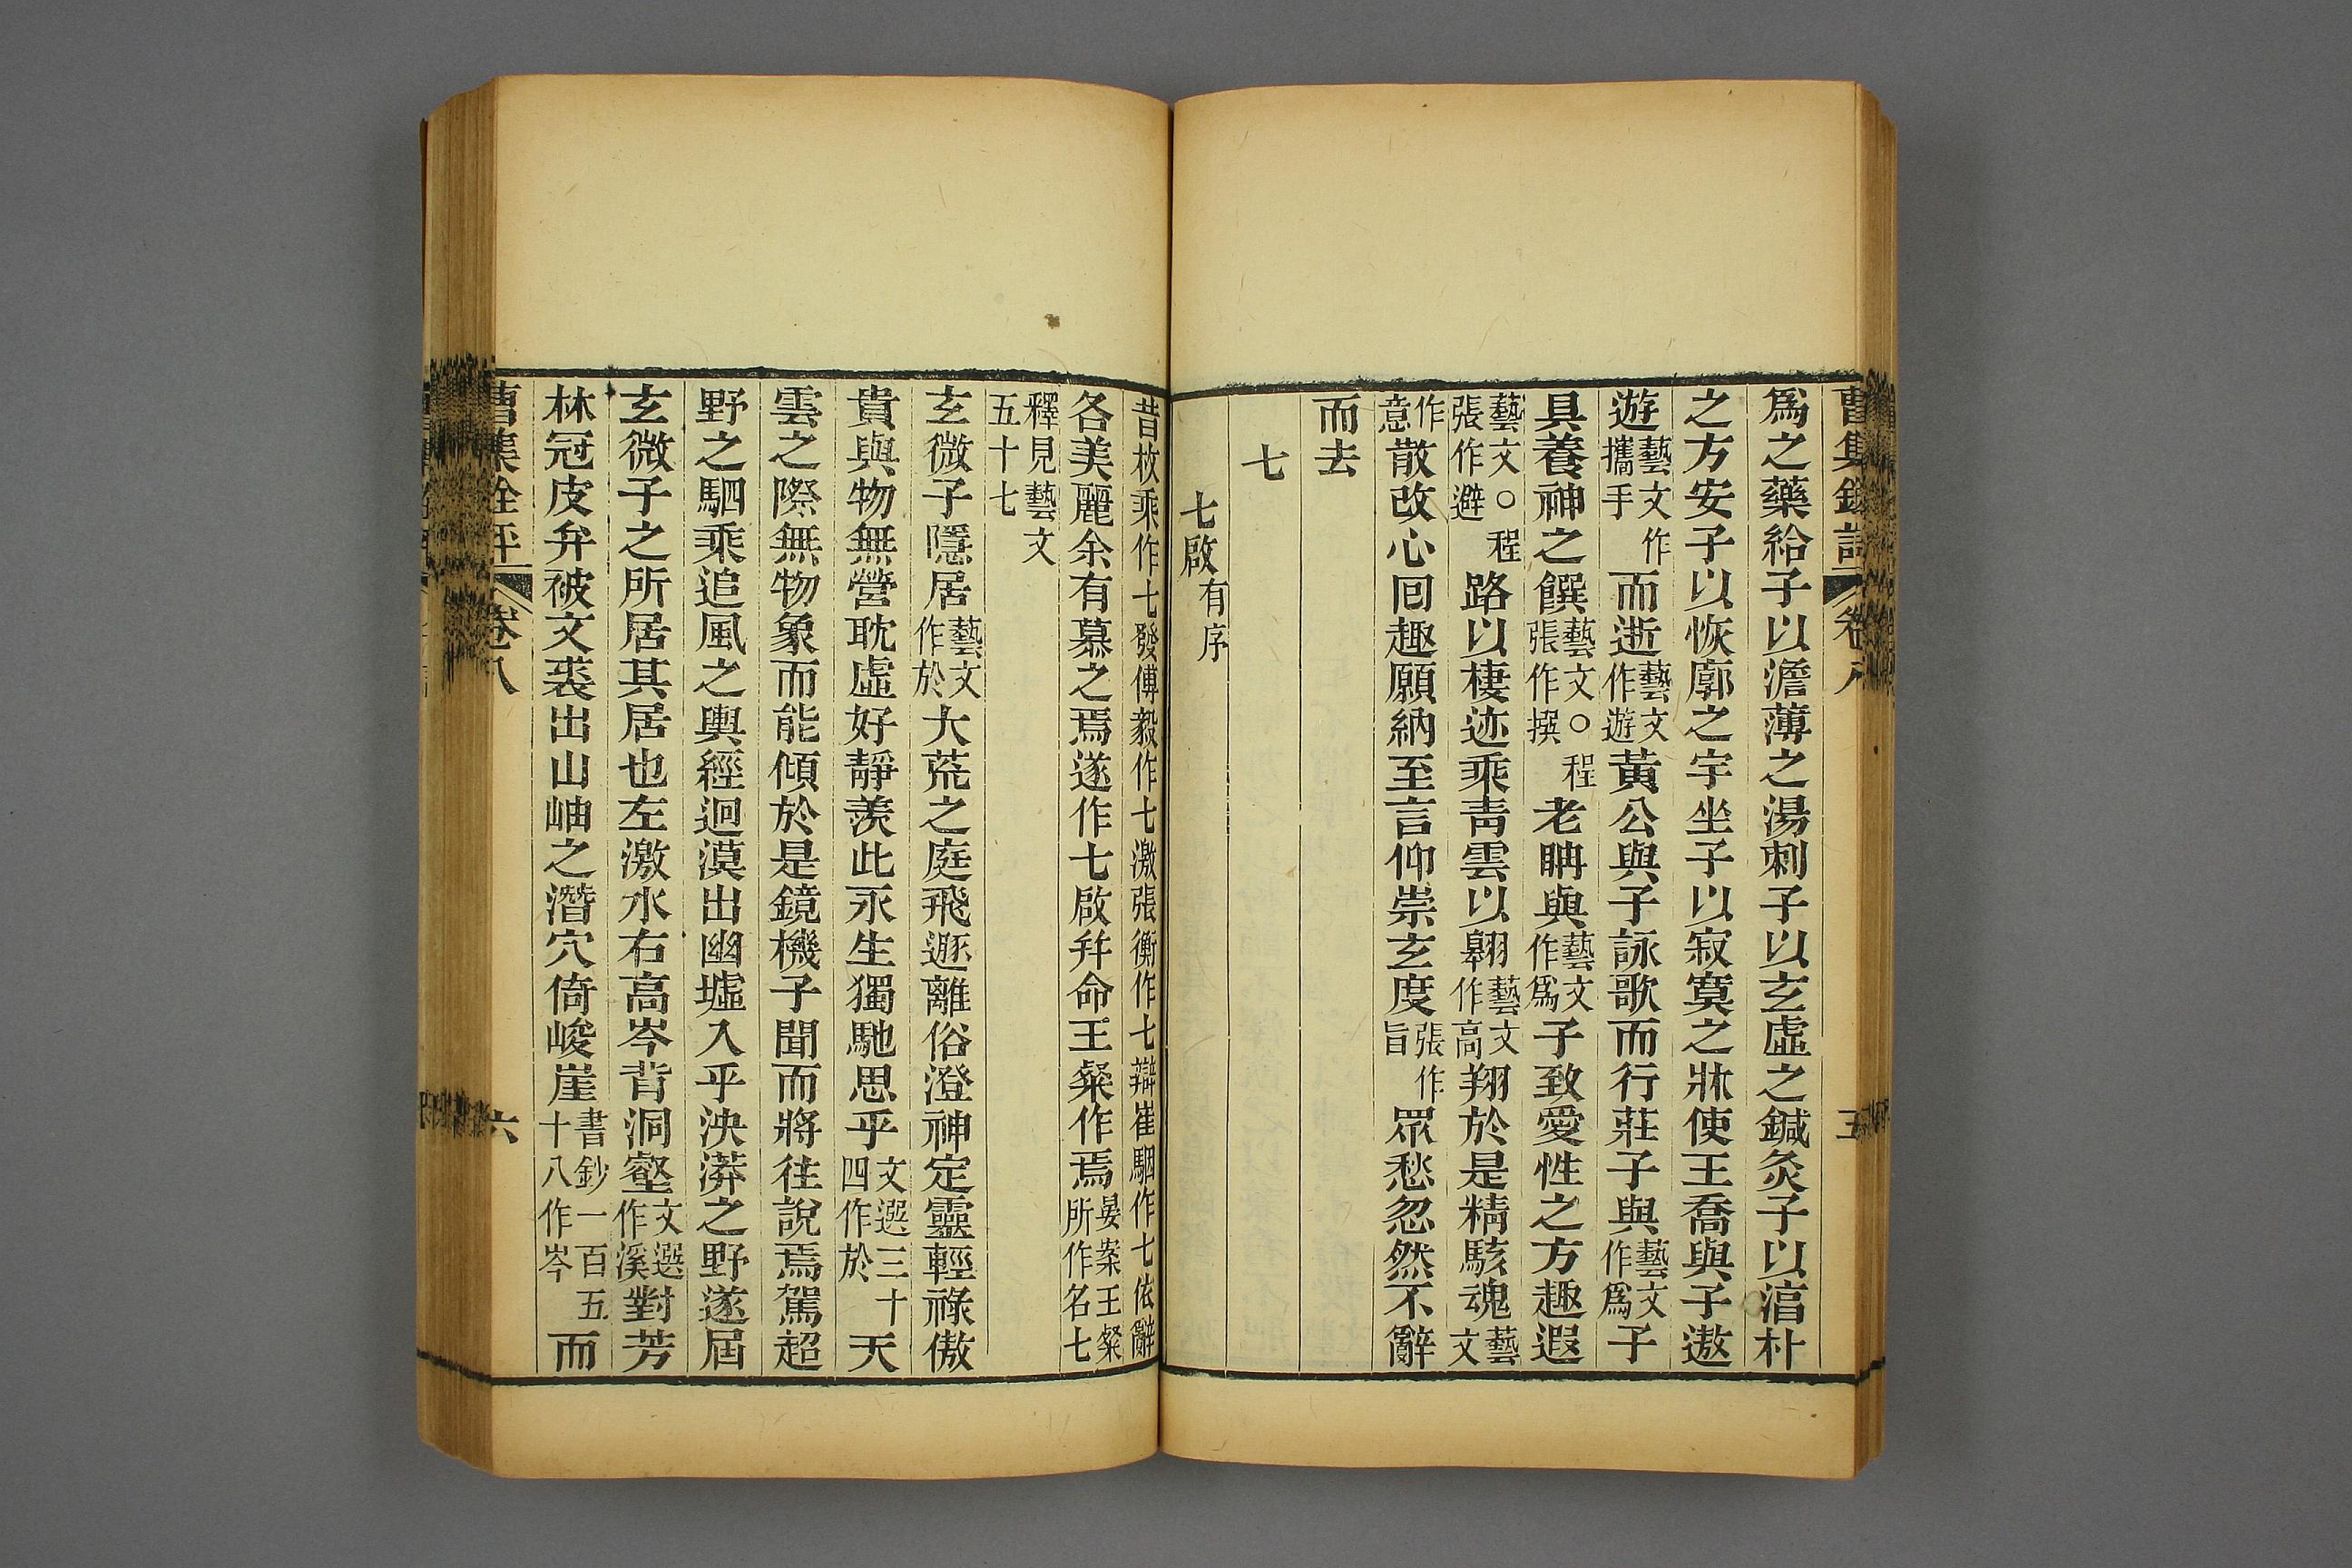 爲之藥給子以澹薄之湯刺子以玄虛之鍼灸子以淳朴
之方安子以恢廓之宇坐子以寂寞之牀使王喬與子遨
遊藝文作攜手而逝藝文作遊黃公與子詠歌而行莊子與藝文作爲子
具養神之饌藝文○程張作撰老聃與藝文作爲子致愛性之方趣遐
藝文○程張作避路以棲迹乘靑雲以翱藝文作高翔於是精駭魂藝文
作意散改心回趣願納至言仰崇玄度張作旨眾愁忽然不辭
而去
七
七啟有序
昔枚乘作七發傅毅作七激張衡作七辯崔駰作七依辭
各美麗余有慕之焉遂作七啟幷命王粲作焉晏案王粲所作名七
釋見藝文五十七
玄微子隱居藝文作於大荒之庭飛遯離俗澄神定靈輕祿傲
貴與物無營耽虛好靜羨此永生獨馳思乎文選三十四作於天
雲之際無物象而能傾於是鏡機子聞而將往說焉駕超
野之駟乘追風之輿經迥漠出幽墟入乎泱漭之野遂屆
玄微子之所居其居也左激水右高岑背洞壑文選作溪對芳
林冠皮弁被文裘出山岫之潛穴倚峻崖書鈔一百五十八作岑而
曹集銓評 卷八 六